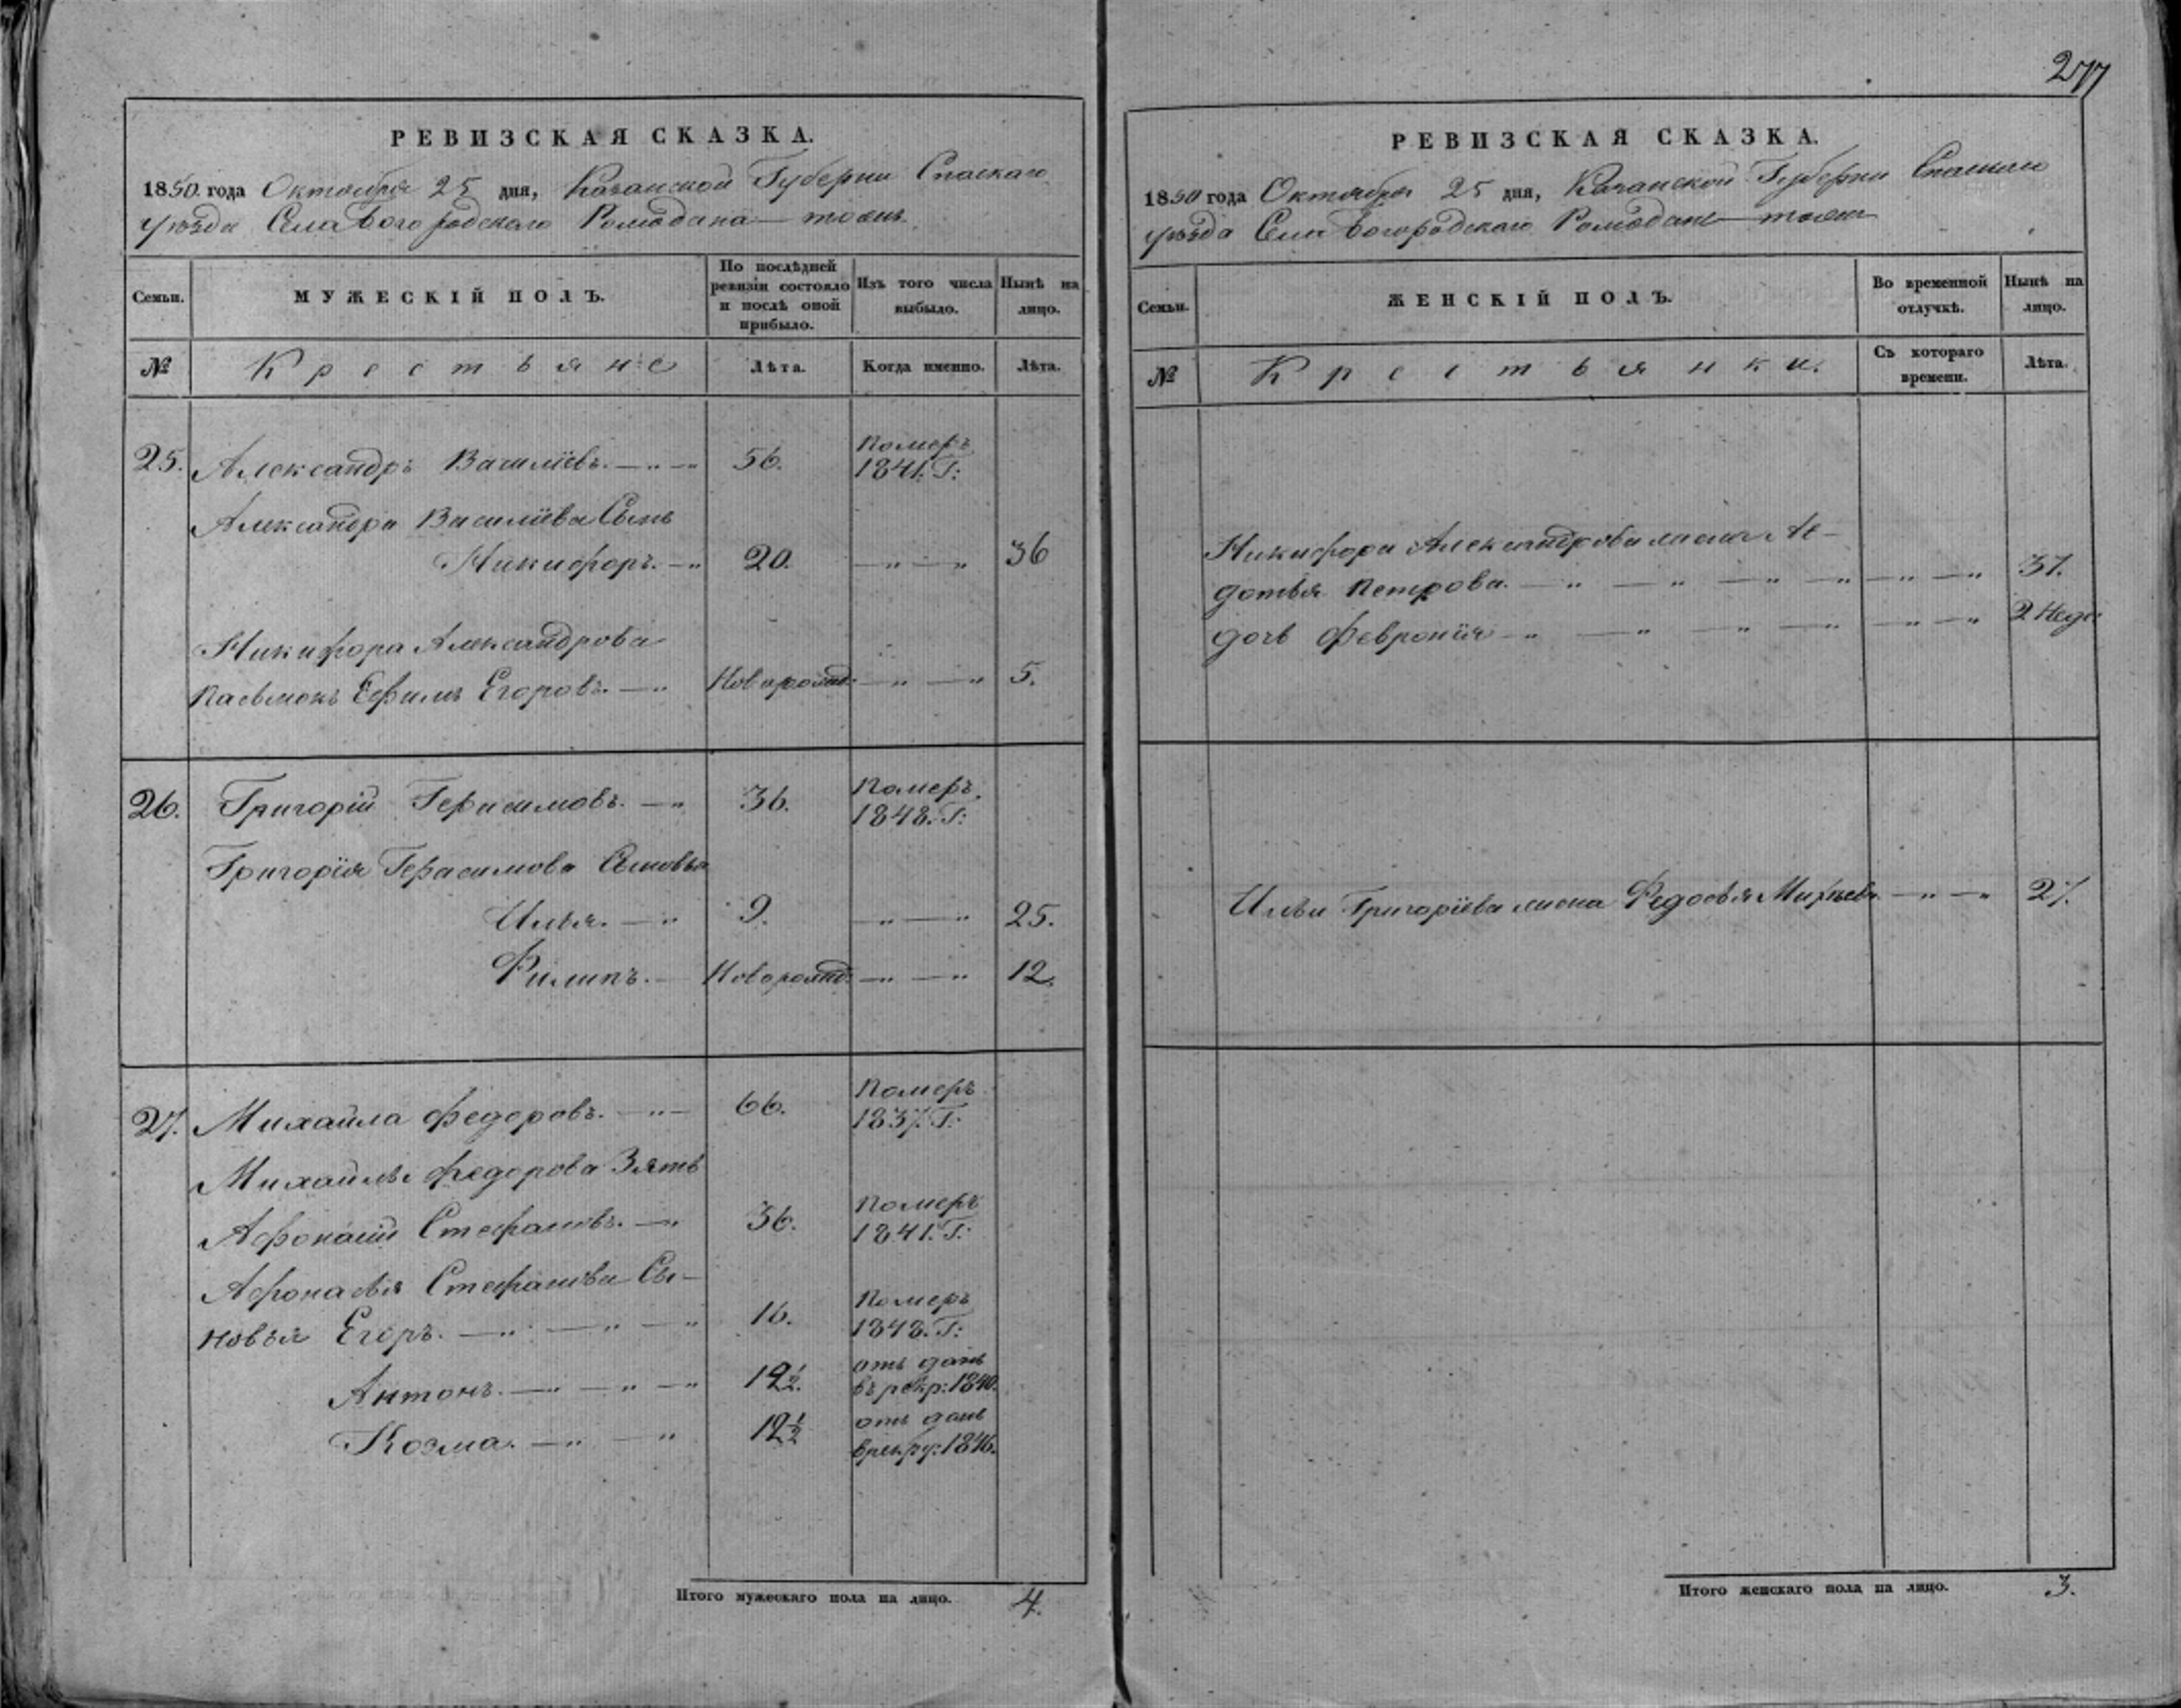 277
РЕВИЗСКАЯ СКАЗКА.
1850. года Октября 25 дня, Казанской Губернии Спаскаго
уѣзда Села Богородскаго Ромодана тожъ
Семьи.
МУЖЕСКІЙ ПОЛЪ.
По послѣдней ревизіи состояло и послѣ оной прибыло.
Изъ того числа выбыло.
Нынѣ на лицо.
№
Крестьяне
Лѣта.
Когда именно.
Лѣта.
25. Александръ Василіевъ. 56. Померъ 1841. Г:
Александра Василіева Сынъ
Никифоръ. 20. 36
Никифора Александрова
Пасынокъ Ефимъ Егоровъ. Новорожд: 5.
26. Григорій Герасимовъ. 36. Померъ. 1848. Г:
Григорія Герасимова Сыновья
Илья. 9. 25.
Филипъ. Новорожд: 12.
27. Михайла Федоровъ. 66. Померъ 1837. Г:
Михайлы Федорова Зять
Афонасій Стефановъ. 36. Померъ 1841. Г:
Афонасья Стефанова Сы-
новья Егоръ. 16. Померъ 1848. Г:
Антонъ. 12½. отъ данъ въ рекр: 1840.
Козма. 12½ отъ данъ в рекру: 1846.
Итого мужескаго пола на лицо. 4.
РЕВИЗСКАЯ СКАЗКА.
1850 года Октября 25 дня, Казанской Губернии Спаскаго
уѣзда Села Богородскаго Ромодана тожъ
Семьи.
ЖЕНСКІЙ ПОЛЪ.
Во временной отлучкѣ.
Нынѣ на лицо.
№
Крестьянки.
Съ котораго времени.
Лѣта.
Никифора Александрова жена Ав-
дотья Петрова. 37.
дочь Февронія 2 Неде:
Ильи Григоріева жена Федосья 27.
Итого женскаго пола на лицо. 3.